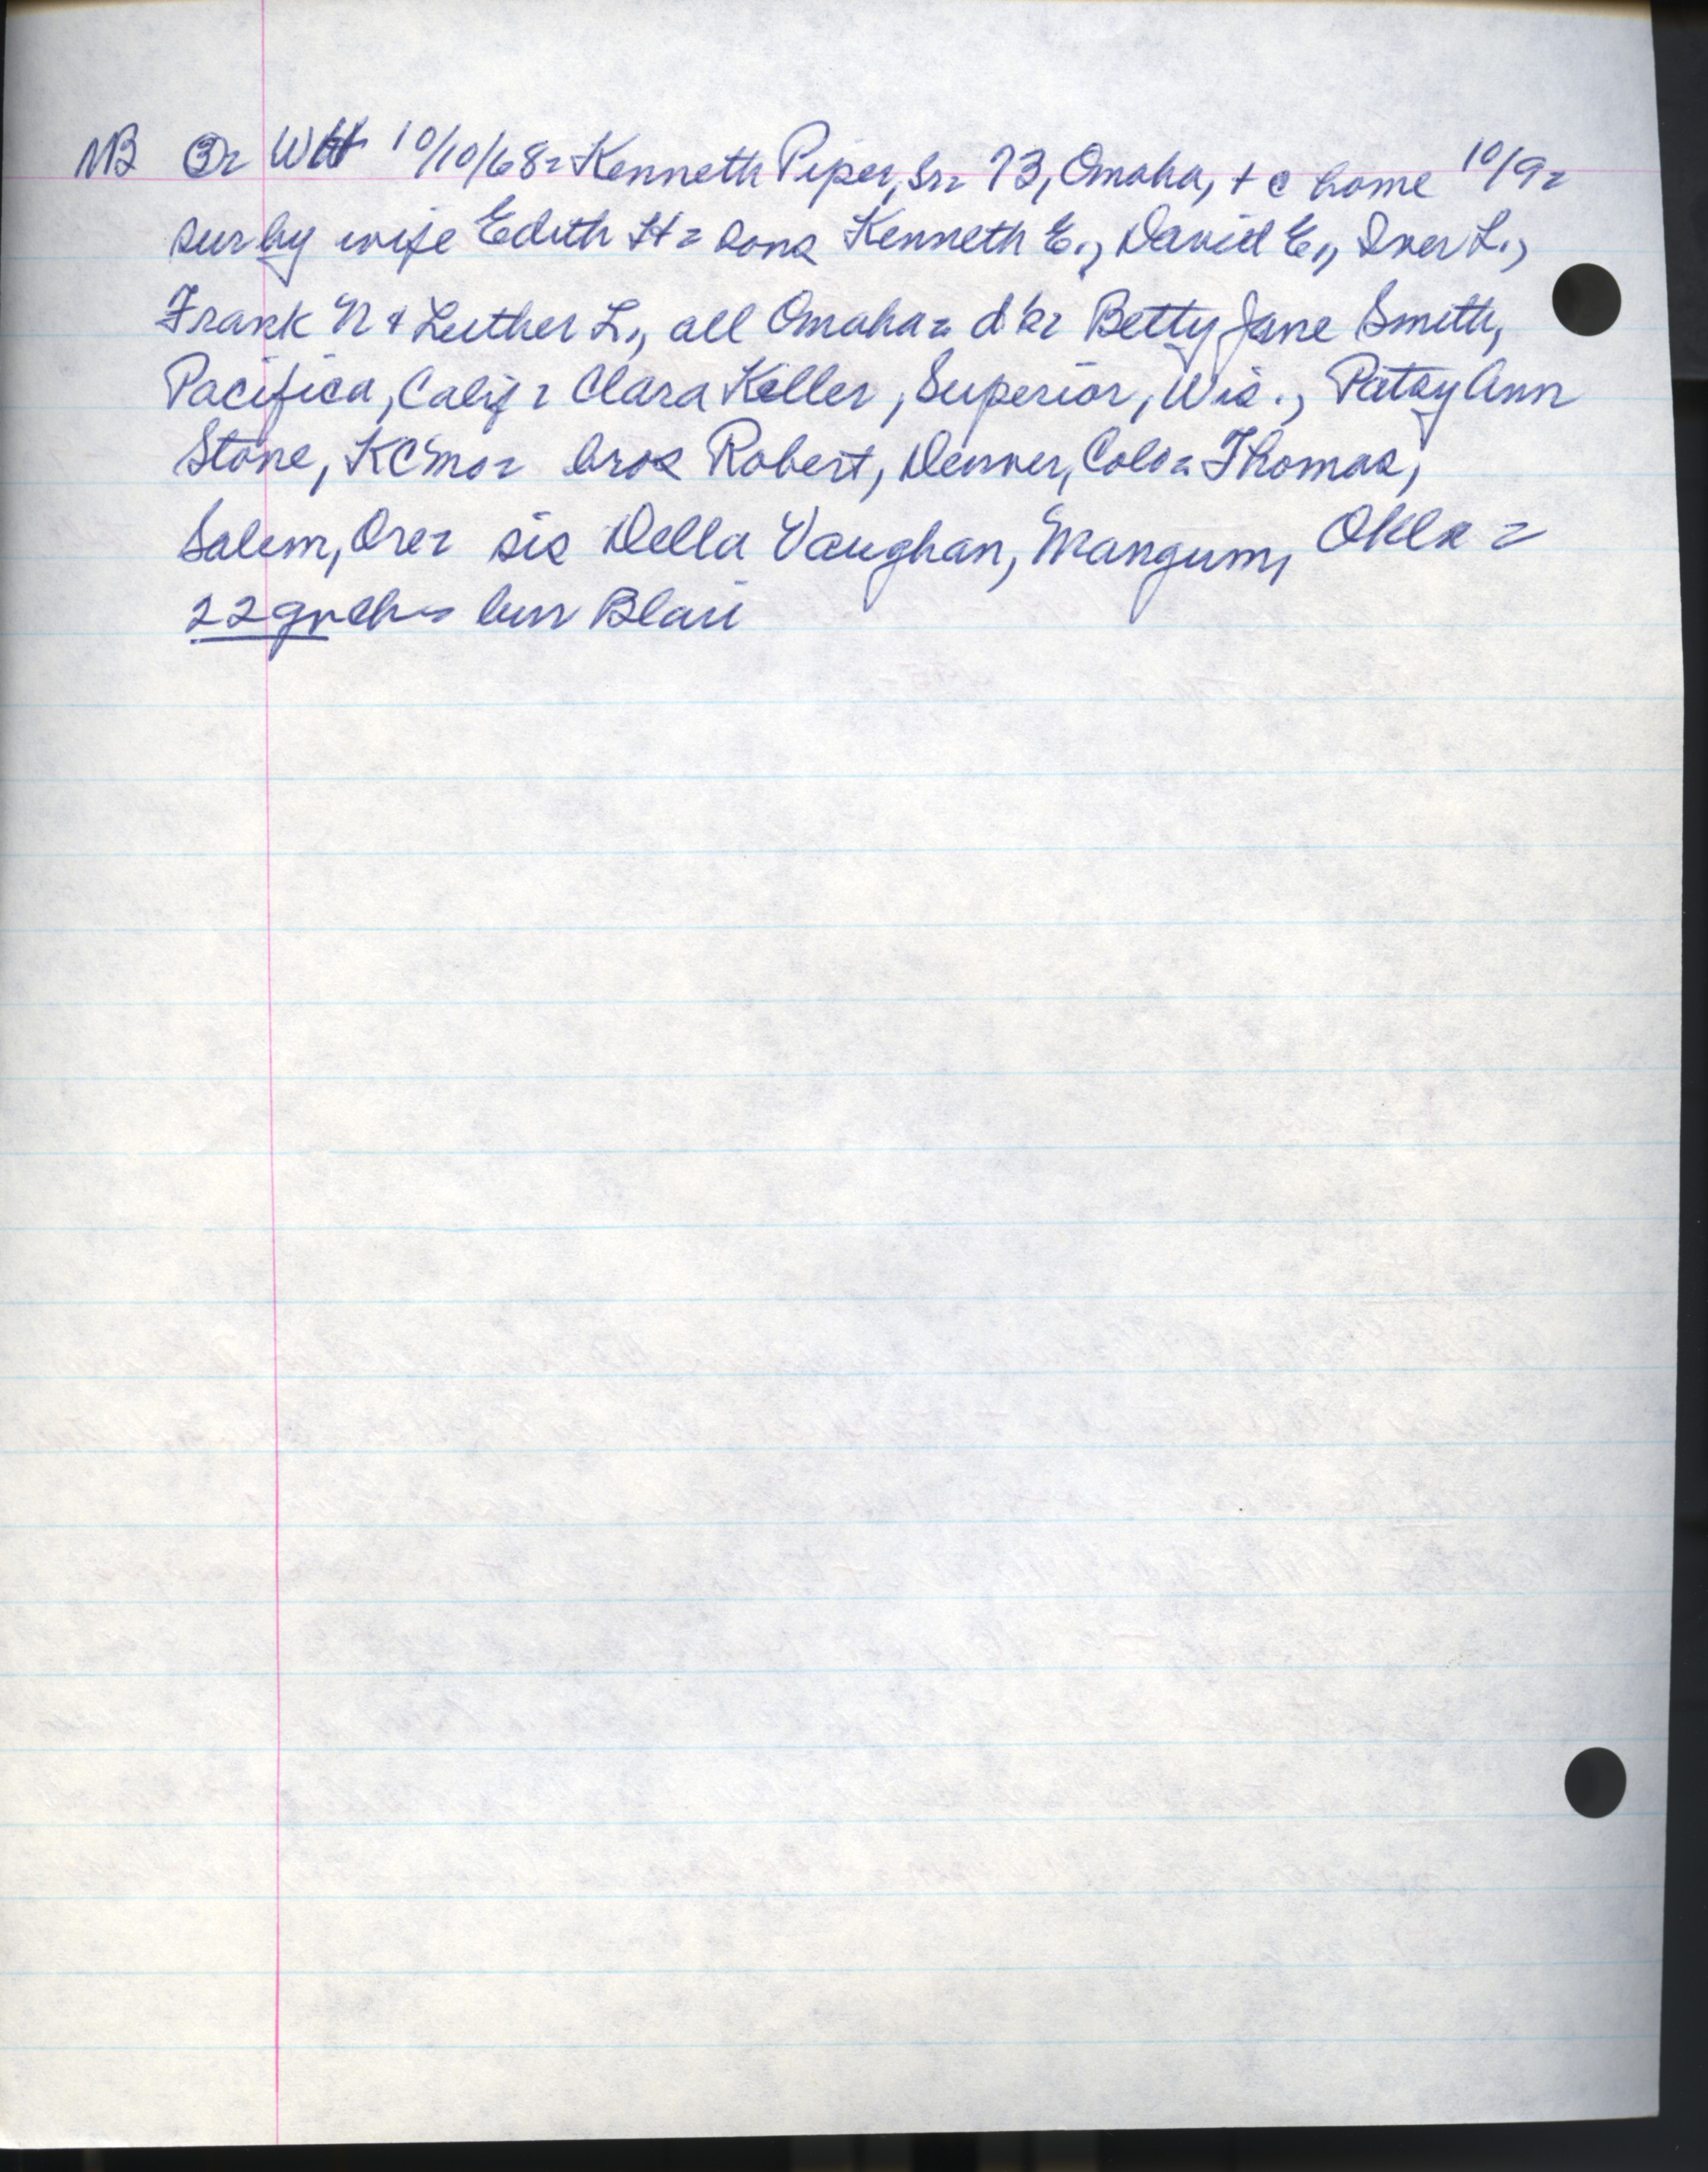 NB ③= WH 10/10/68= Kenneth Piper, Sr= 73, Omaha, + @ home 10/9=
sur by wife Edith H= sons Kenneth E., David E., Iver L.,
Frank N & Luther L., all Omaha= d's= Betty Jane Smith,
Pacifica, Calif= Clara Keller, Superior, Wis., Patsy Ann
Stone, KCMo= bros Robert, Denver, Colo= Thomas,
Salem, Ore= sis Della Vaughan, Mangum, Okla=
22 grch= bur Blair